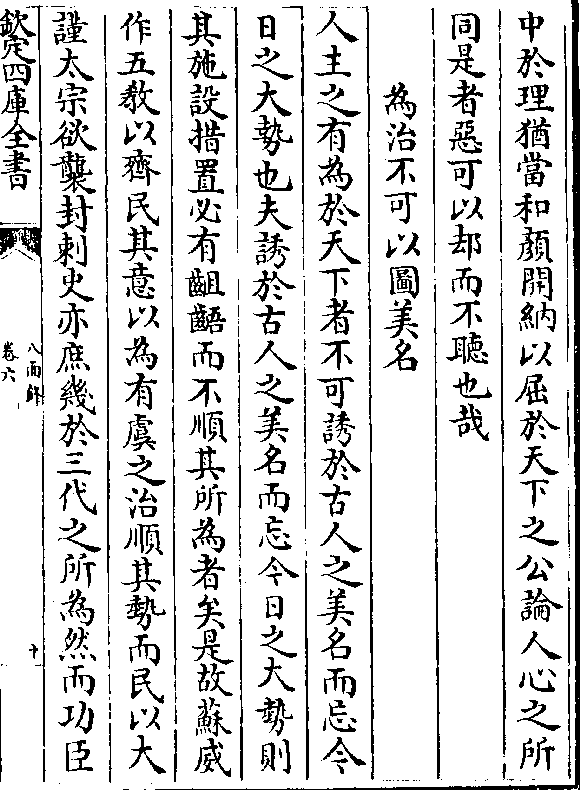 中於理猶當和顔開納以屈於天下之公論人心之所
同是者惡可以却而不聽也哉
為治不可以圖美名
人主之有為於天下者不可誘於古人之美名而忘今
日之大勢也夫誘於古人之美名而忘今日之大勢則
其施設措置必有齟齬而不順其所為者矣是故蘇威
作五教以齊民其意以為有虞之治順其勢而民以大
讙太宗欲襲封刺史亦庶幾於三代之所為然而功臣
欽定四庫全書
八面鋒
卷六
十